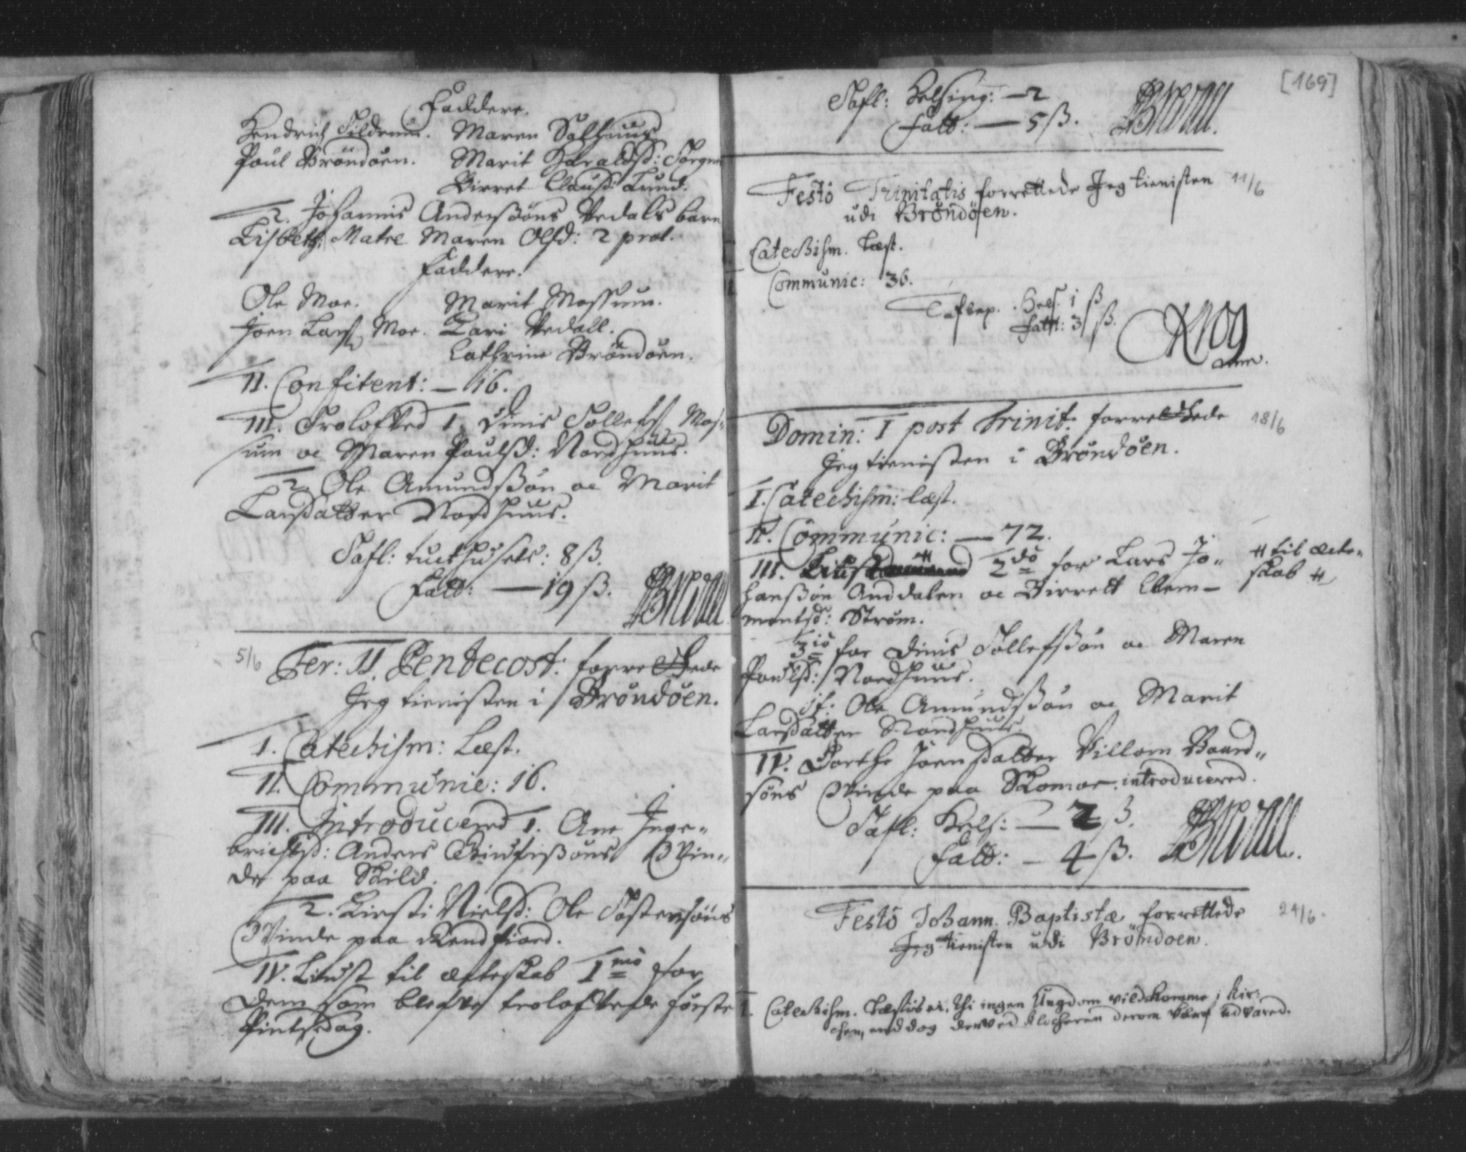 Faddere.
Hendrich Tildrum. Maren Salhuus
Poul Brøndøen. Marit Haraldsd: Torgen
Birret Clausd: Lund.
2. Johannis Anderssøns Vedals barn
Lisbeth, Matre Maren Olsd: 2 præl.
Faddere.
Ole Moe. Marit Mossum.
Joen Lars: Moe. Kari Vedall.
Cathrine Brøndøen.
II. Confitent: – 16.
III. Trolofved 1. Dinis Tollefs: Mos-
sum oc Maren Poulsd: Nordhuus.
2. Ole Amundssøn oc Marit
Larsdatter Nordhuus.
Tafl: tuckhuset: 8 ß.
Fatt: — 19 ß.
5/6 Fer: II. Pentecost: forrettede
Jeg tienisten i Brøndøen.
I. Catechism: Læst.
II. Communic: 16.
III. Introducered 1. Ane Inge-
brichtsd: Anders Guldbrssøns Qvin-
de paa Skild.
2. Kirsti Nielsd: Ole Tostensøns
Qvinde paa Rendfiord.
IV. Liust til ecteskab 1mo for
dem som blefve trolofvede første
Pintzdag.
[169]
Tafl: Helsing: – 2
Fatt: — 5 ß.
Festo Trinitatis forrettede Jeg tienisten 11/6
udi Brøndøen.
Catechism. Læst.
Communic: 36.
Taflep. Hels. 1 ß
Fatt: 3 ß.
Krog
Domin: I post Trinit: forrettede 18/6
Jeg tienisten i Brøndøen.
I. Catechism: læst.
II. Communic: — 72.
III. Liust # 2do for Lars Jo- # til ecte-
hanssøn Anddalen oc Birrett Clem- skab #
mentsd: Strøm.
3io for Dinis Tollefssøn oc Maren
Poulsd: Nordhuus.
it: Ole Amundssøn oc Marit
Larsdatter Nordhuus.
IV. Dorthe Joensdatter Villom Baard-
søns Qvinde paa Skomoe introducered.
Tafl: Hels: — 2 ß.
Fatt: – 4 ß.
Festo Johann. Baptistæ forrettede 24/6.
Jeg tienisten udi Brøndoen.
I. Catechism. Læstis ei, thi ingen Ungdom vilde komme i Kir-
chen, end dog derved Klocheren derom varit advared.